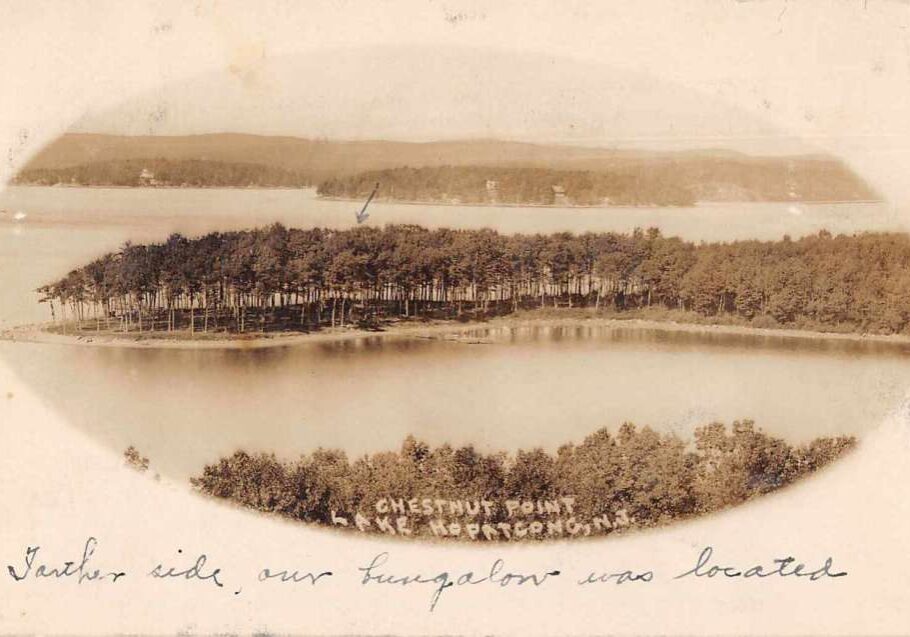 CHESTNUT POINT
LAKE HOPATCONG, N.J.
Farther side, our bungalow was located